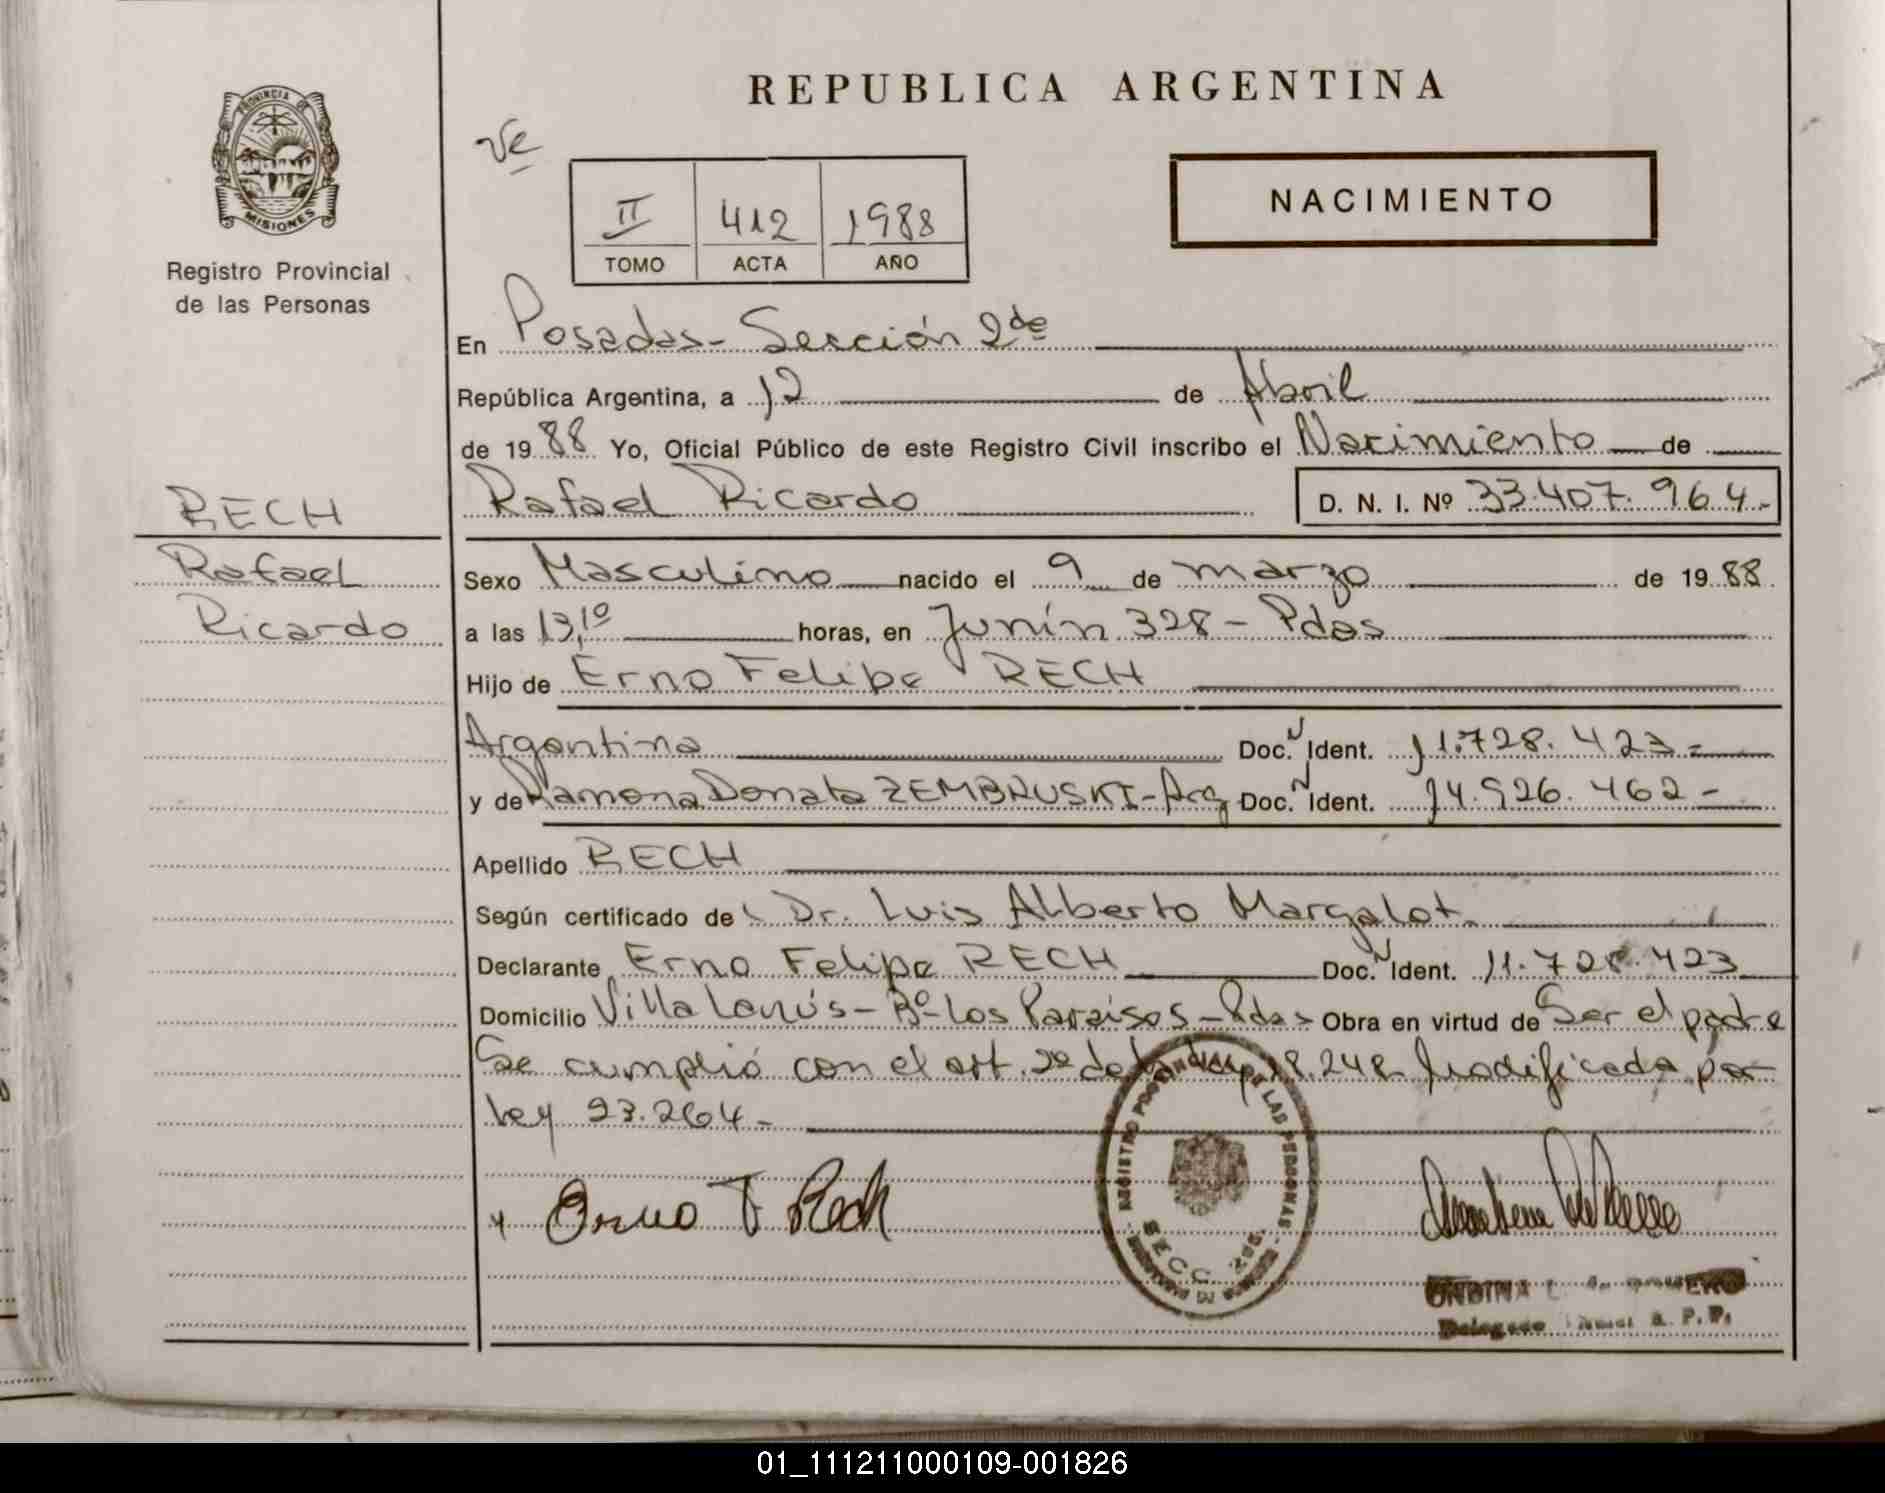 REPUBLICA ARGENTINA
PROVINCIA DE
MISIONES
Registro Provincial
de las Personas
Ve
II 412 1988
TOMO ACTA AÑO
NACIMIENTO
En Posadas - Sección 2da
República Argentina, a 12 de Abril
de 1988 Yo, Oficial Público de este Registro Civil inscribo el Nacimiento de
Rafael Ricardo D. N. I. Nº 33.407.964.-
RECH
Rafael
Ricardo
Sexo Masculino nacido el 9 de marzo de 1988
a las 13,10 horas, en Junín 328 - Pdas
Hijo de Erno Felipe RECH
Argentina Doc. N Ident. 11.728.423 =
y de Ramona Donata ZEMBRUSKI - Arg Doc. N Ident. 14.926.462 -
Apellido RECH
Según certificado de Dr. Luis Alberto Margalot.
Declarante Erno Felipe RECH Doc. N Ident. 11.728.423
Domicilio Villa Lanús - Bº Los Paraisos - Pdas Obra en virtud de Ser el padre
Se cumplió con el art. 2º de la Ley 18.248 modificada por
Ley 23.264 -
REGISTRO PROVINCIAL DE LAS PERSONAS
SECC. 2da.
Erno F Rech
ONDINA L.
Delegado R. P. P.
01_111211000109-001826